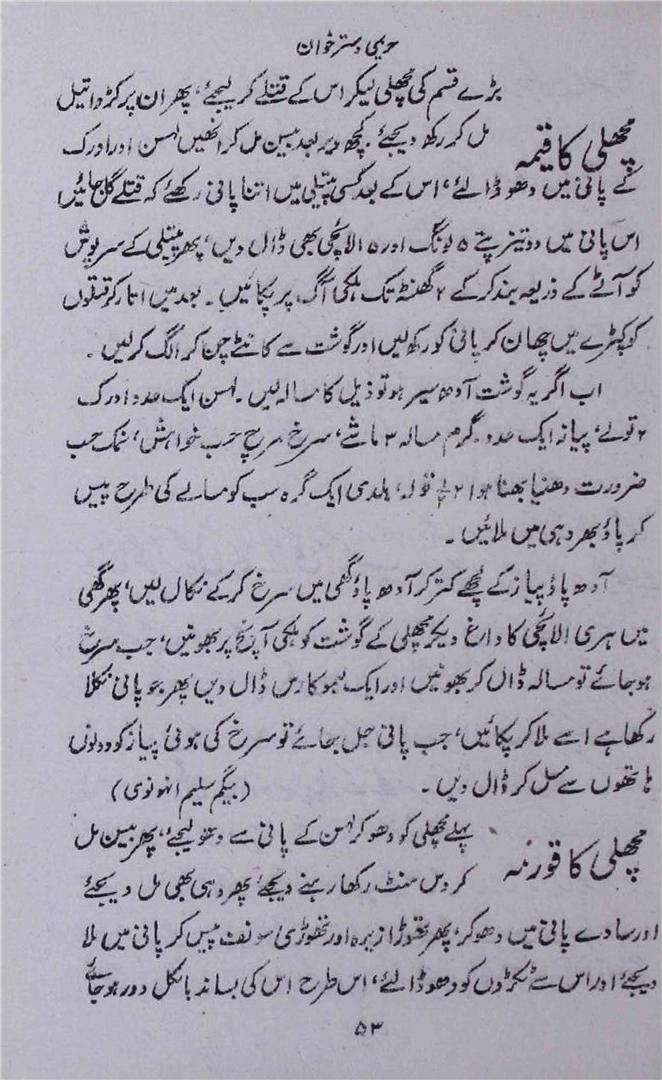 حریمی دسترخوان
بڑے قسم کی مچھلی لیکر اس کے قتلے کر لیجئے، پھر ان پر کڑوا تیل
مچھلی کا قیمہ
مل کر رکھ دیجئے۔ کچھ دیر بعد بیسن مل کر انھیں لہسن اور ادرک
کے پانی میں دھو ڈالئے، اس کے بعد کسی پتیلی میں اتنا پانی رکھئے کہ قتلے گل جائیں
اس پانی میں دو تیز پتے ۵ لونگ اور ۵ الائچی بھی ڈال دیں، پھر پتیلی کے سرپوش
کو آٹے کے ذریعہ بند کر کے ۲ گھنٹہ تک ہلکی آگ پر پکائیں۔ بعد میں اتار کر قتلوں
کو کپڑے میں چھان کر پانی کو رکھ لیں اور گوشت سے کانٹے چن کر الگ کر لیں۔
اب اگر یہ گوشت آدھ سیر ہو تو ذیل کا مسالہ لیں۔ لہسن ایک عدد ادرک
۲ تولے، پیاز ایک عدد۔ گرم مسالہ ۳ ماشے، سرخ مرچ حسب خواہش، نمک حسب
ضرورت دھنیا بھنا ہوا ۲½ تولہ، ہلدی ایک گرہ سب کو مسالے کی طرح پیس
کر پاؤ بھر دہی میں ملائیں۔
آدھ پاؤ پیاز کے لچھے کتر کر آدھ پاؤ گھی میں سرخ کر کے نکال لیں، پھر گھی
میں ہری الائچی کا داغ دیکر مچھلی کے گوشت کو ہلکی آنچ پر بھونیں، جب سرخ
ہو جائے تو مسالہ ڈال کر بھونیں اور ایک لیمو کا رس ڈال دیں پھر جو پانی نکلا
رکھا ہے اسے ملا کر پکائیں، جب پانی جل جائے تو سرخ کی ہوئی پیاز کو دونوں
ہاتھوں سے مسل کر ڈال دیں۔ (بیگم سلیم انہونوی)
پہلے مچھلی کو دھو کر لہسن کے پانی سے دھو لیجئے، پھر بیسن مل
مچھلی کا قورمہ
کر دس منٹ رکھا رہنے دیجئے پھر دہی بھی مل دیجئے
اور سادے پانی میں دھو کر، پھر تھوڑا زیرہ اور تھوڑی سونف پیس کر پانی میں ملا
دیجئے اور اس سے ٹکڑوں کو دھو ڈالئے، اس طرح اس کی بساند بالکل دور ہو جائے
۵۳